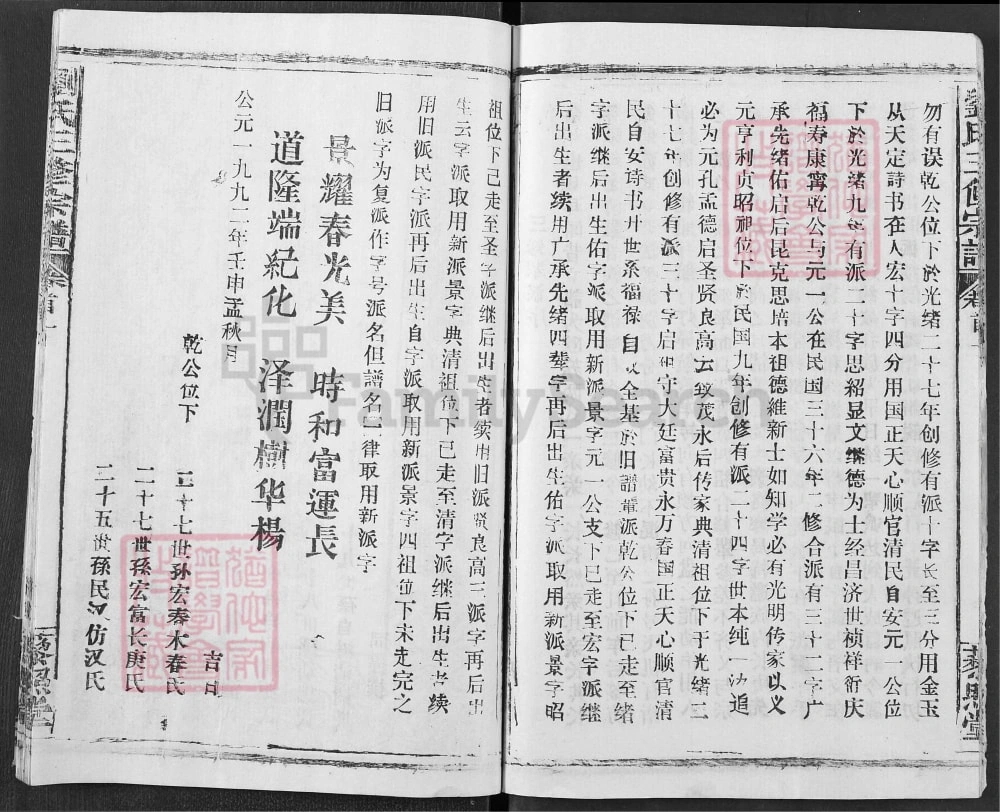 勿有误乾公位下於光绪二十七年创修有派十字长至三分用金玉
从天定詩书在人宏十字四分用国正天心顺官清民自安元一公位
下於光绪九年有派二十字思紹显文继德为士经昌济世祯祥衍庆
福寿康宁乾公与元一公在民国三十六年二修合派有三十二字广
承先绪佑启后昆克思培本祖德维新士如知学必有光明传家以义
元亨利贞昭祖位下於民国九年创修有派二十四字世本纯一法追
必为元孔孟德启圣贤良高云致茂永后传家典清祖位下于光绪二
十七年创修有派三十字启祖守大廷富贵永万春国正天心顺官清
民自安诗书升世系福禄自以全基於旧譜輩派乾公位下已走至绪
字派继后出生佑字派取用新派景字元一公支下已走至宏字派继
后出生者续用广承先绪四辈字再后出生佑字派取用新派景字昭
祖位下已走至圣字派继后出生者续用旧派贤良高三派字再后出
生云字派取用新派景字典清祖位下已走至清字派继后出生者续
用旧派民字派再后出生自字派取用新派景字四祖位下未走完之
旧派字为复派作字号派名但譜名一律取用新派字
景耀春光美 時和富運長
道隆端紀化 泽潤樹华楊
公元一九九二年壬申孟秋月 吉日
乾公位下
二十七世孙宏奉木春氏
二十七世孫宏富长庚氏
二十五世孫民汉仿汉氏